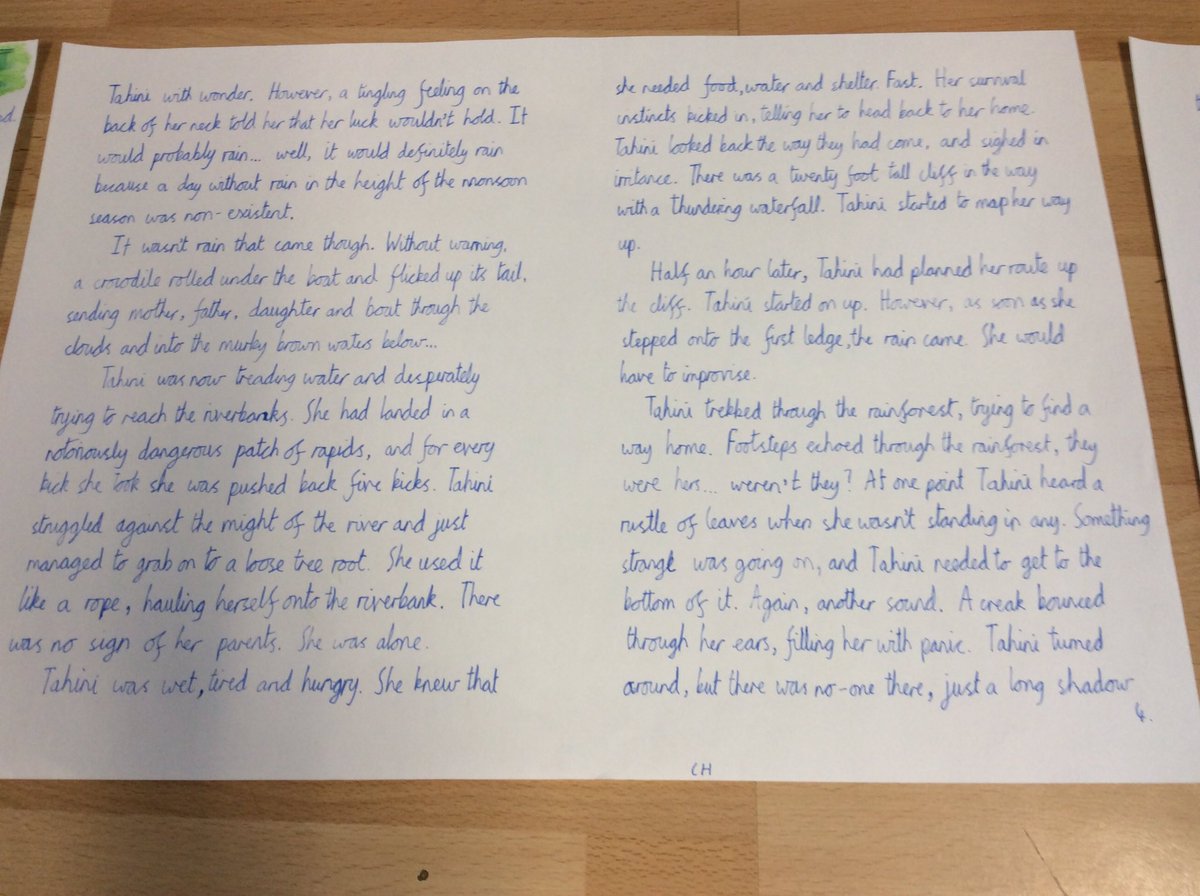 Tahini with wonder. However, a tingling feeling on the
back of her neck told her that her luck wouldn't hold. It
would probably rain... well, it would definitely rain
because a day without rain in the height of the monsoon
season was non-existent.
It wasn't rain that came though. Without warning,
a crocodile rolled under the boat and flicked up its tail,
sending mother, father, daughter and boat through the
clouds and into the murky brown waters below...
Tahini was now treading water and desperately
trying to reach the riverbanks. She had landed in a
notoriously dangerous patch of rapids, and for every
kick she took she was pushed back five kicks. Tahini
struggled against the might of the river and just
managed to grab on to a loose tree root. She used it
like a rope, hauling herself onto the riverbank. There
was no sign of her parents. She was alone.
Tahini was wet, tired and hungry. She knew that
she needed food, water and shelter. Fast. Her survival
instincts kicked in, telling her to head back to her home.
Tahini looked back the way they had come, and sighed in
irritance. There was a twenty foot tall cliff in the way
with a thundering waterfall. Tahini started to map her way
up.
Half an hour later, Tahini had planned her route up
the cliff. Tahini started on up. However, as soon as she
stepped onto the first ledge, the rain came. She would
have to improvise.
Tahini trekked through the rainforest, trying to find a
way home. Footsteps echoed through the rainforest, they
were hers... weren't they? At one point Tahini heard a
rustle of leaves when she wasn't standing in any. Something
strange was going on, and Tahini needed to get to the
bottom of it. Again, another sound. A creak bounced
through her ears, filling her with panic. Tahini turned
around, but there was no-one there, just a long shadow
4.
CH